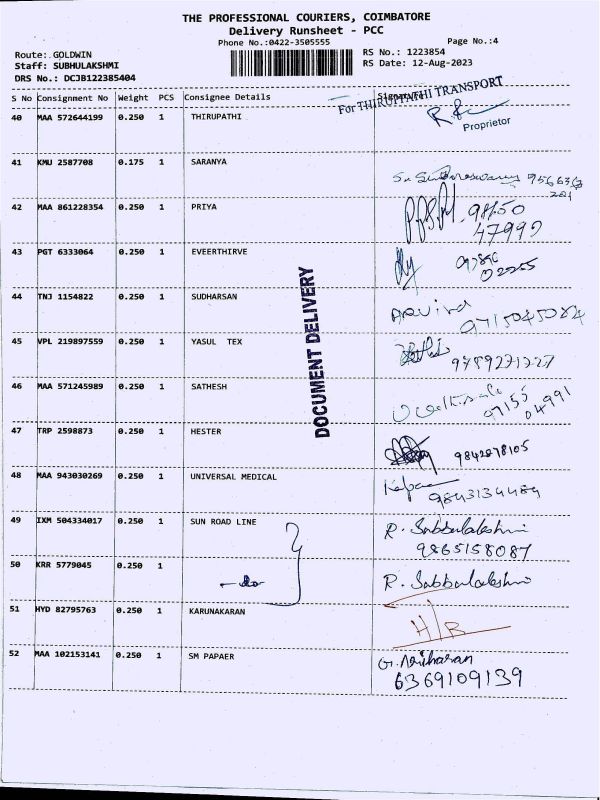 THE PROFESSIONAL COURIERS, COIMBATORE
Delivery Runsheet - PCC
Phone No.:0422-3505555
Page No.:4
Route: GOLDWIN
RS No.: 1223854
Staff: SUBHULAKSHMI
RS Date: 12-Aug-2023
DRS No.: DCJB122385404
S No Consignment No Weight PCS Consignee Details Signature
For THIRUPPATHI TRANSPORT
40 MAA 572644199 0.250 1 THIRUPATHI
Proprietor
41 KMU 2587708 0.175 1 SARANYA
42 MAA 861228354 0.250 1 PRIYA
98450
47999
43 PGT 6333064 0.250 1 EVEERTHIRVE
44 TNJ 1154822 0.250 1 SUDHARSAN
Arvind
9715045084
45 VPL 219897559 0.250 1 YASUL TEX
9789271227
46 MAA 571245989 0.250 1 SATHESH
97155
04991
47 TRP 2598873 0.250 1 HESTER
9842878105
48 MAA 943030269 0.250 1 UNIVERSAL MEDICAL
9843134484
49 IXM 504334017 0.250 1 SUN ROAD LINE R. Subbulakshmi
9865158087
50 KRR 5779045 0.250 1 -do R. Subbulakshmi
51 HYD 82795763 0.250 1 KARUNAKARAN H/B
52 MAA 102153141 0.250 1 SM PAPAER G. Hariharan
6369109139
DOCUMENT DELIVERY